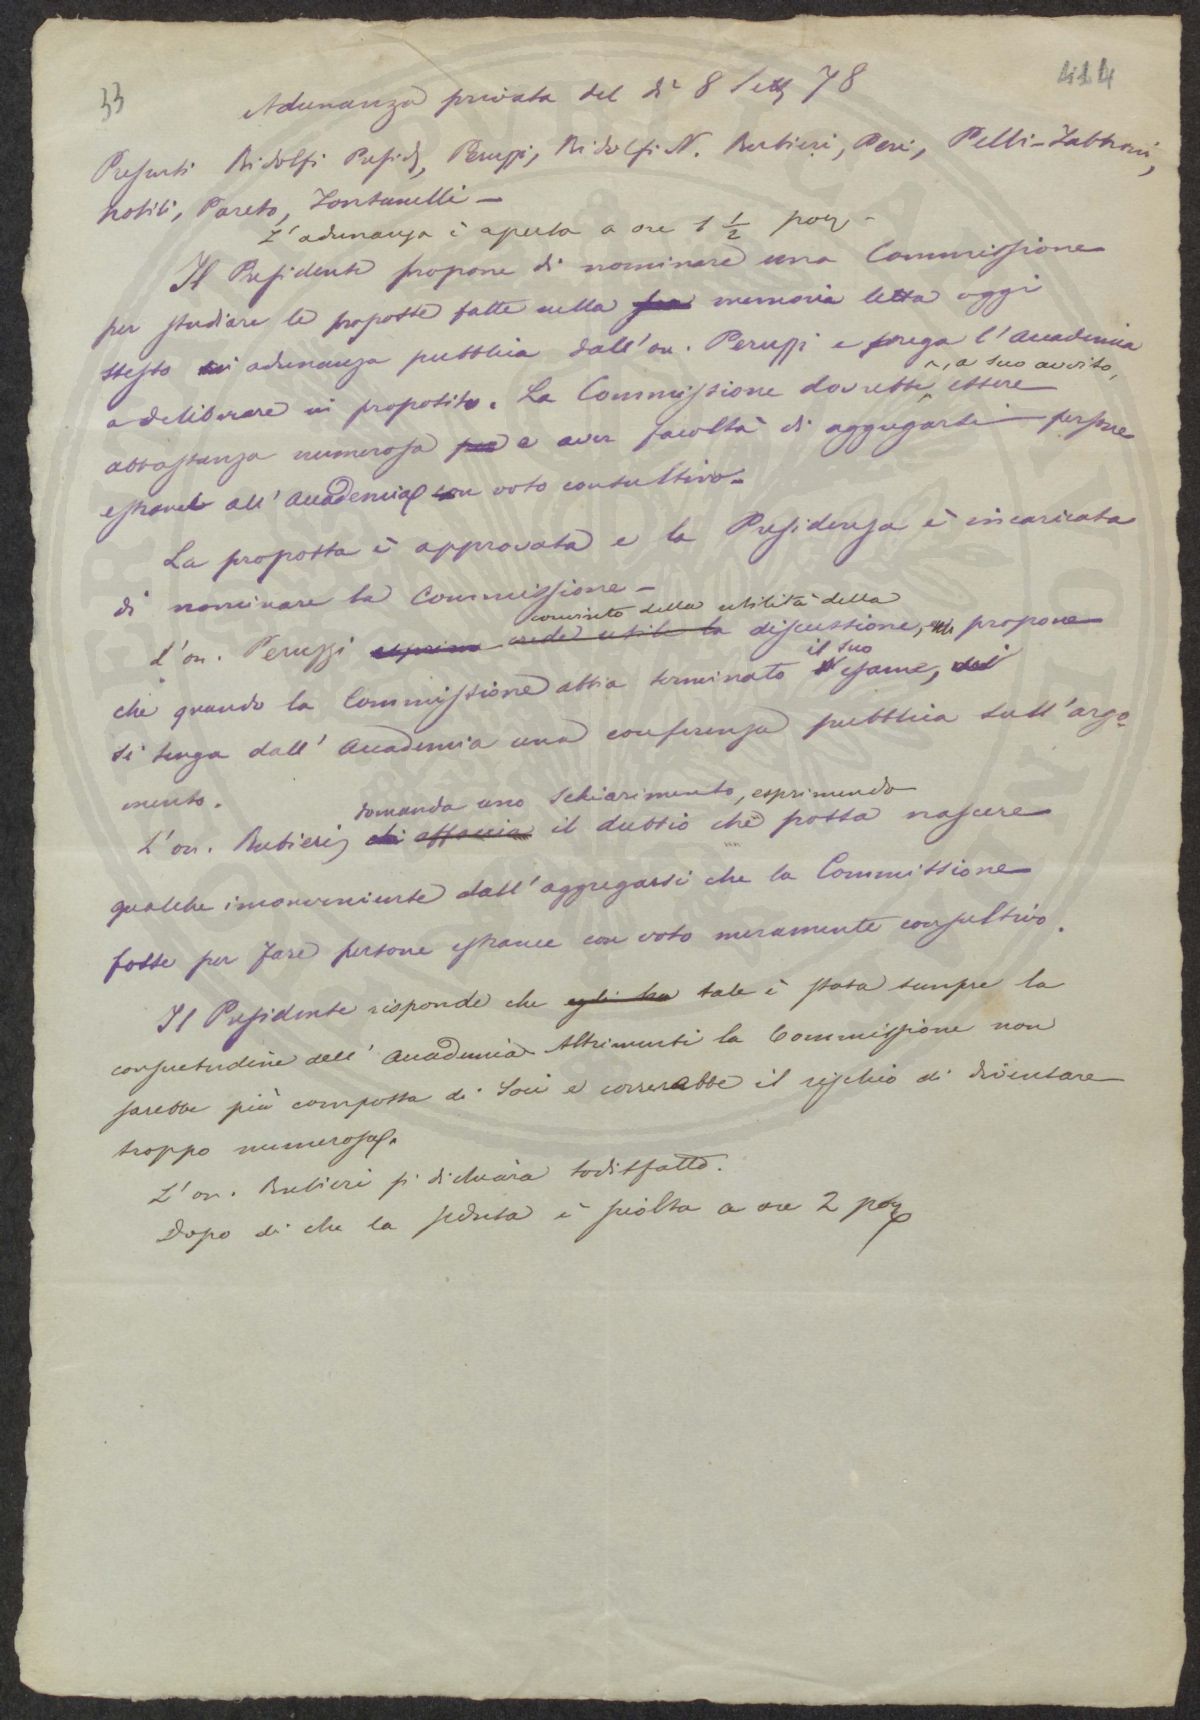 33
414
Adunanza privata del dì 8 Sett 78
Presenti Ridolfi Presid, Peruzzi, Ridolfi N. Rubieri, Peri, Pelli-Fabbroni,
Nobili, Pareto, Fontanelli —
L'adunanza è aperta a ore 1 1/2 pom -
Il Presidente propone di nominare una Commissione
per studiare le proposte fatte nella sua memoria letta oggi
stesso in adunanza pubblica dall'on. Peruzzi e prega l'Accademia
, a suo avviso,
a deliberare in proposito. La Commissione dovrebbe essere
abbastanza numerosa per e aver facoltà di aggregarsi persone
estranee all'Accademia con voto consultivo.
La proposta è approvata e la Presidenza è incaricata
di nominare la Commissione —
convinto della utilità della
L'on. Peruzzi esprime crede utile la discussione, propone
il suo
che quando la Commissione abbia terminato esame,
si tenga dall'Accademia una conferenza pubblica sull'argo-
mento.
domanda uno schiarimento, esprimendo
L'on. Rubieri, affaccia il dubbio che possa nascere
qualche inconveniente dall'aggregarsi che la Commissione
fosse per fare persone estranee con voto meramente consultivo.
Il Presidente risponde che egli ha tale è stata sempre la
consuetudine dell'Accademia. Altrimenti la Commissione non
sarebbe più composta di Soci e correrebbe il rischio di diventare
troppo numerosa.
L'on. Rubieri si dichiara sodisfatto.
Dopo di che la seduta è sciolta a ore 2 pom